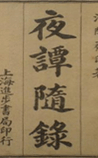 夜譚隨錄
上海進步書局印行